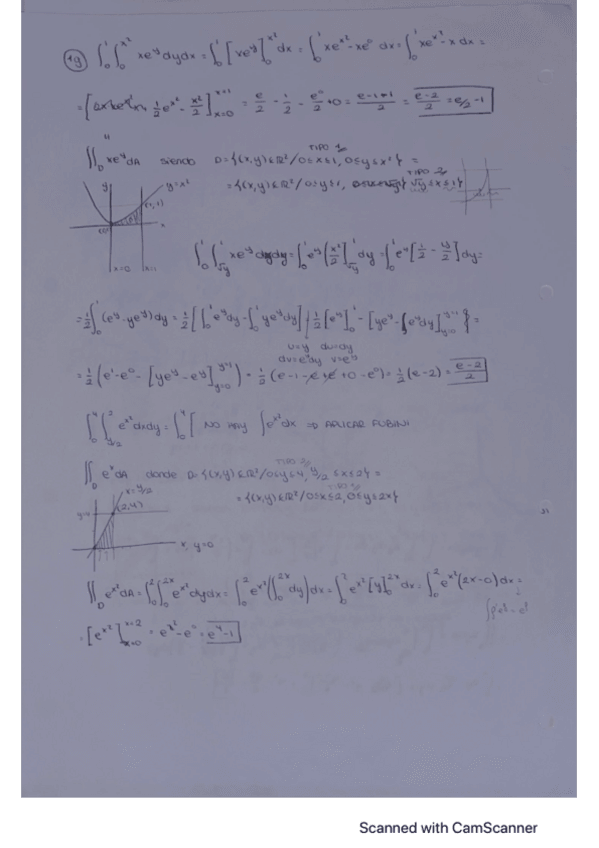 19 ∫₀¹∫₀^{x²} xe^y dydx = ∫₀¹ [xe^y]₀^{x²} dx = ∫₀¹ xe^{x²} - xe⁰ dx = ∫₀¹ xe^{x²} - x dx =
= [ ½e^{x²} - x²/2 ]_{x=0}^{x=1} = e/2 - 1/2 - e⁰/2 + 0 = (e-1-1)/2 = (e-2)/2 = e/2 - 1
TIPO 1
∬_D xe^y dA siendo D = {(x,y) ∈ ℝ² / 0≤x≤1, 0≤y≤x²} =
TIPO 2
= {(x,y) ∈ ℝ² / 0≤y≤1, √y ≤ x ≤ 1}
y y=x²
(1,1)
x
x=0 x=1
∫₀¹∫_{√y}^1 xe^y dxdy = ∫₀¹ e^y [x²/2]_{√y}^1 dy = ∫₀¹ e^y [1/2 - y/2] dy =
= ½∫₀¹ (e^y - ye^y) dy = ½ [∫₀¹ e^y dy - ∫₀¹ ye^y dy] ½ {[e^y]₀¹ - [ye^y - ∫e^y dy]_{y=0}^{y=1}} =
u=y du=dy
dv=e^y dy v=e^y
= ½ (e¹ - e⁰ - [ye^y - e^y]_{y=0}^{y=1}) = ½ (e - 1 - e + e + 0 - e⁰) = ½ (e-2) = (e-2)/2
∫₀⁴∫_{y/2}^2 e^{x²} dxdy = ∫₀⁴ [ NO HAY ∫e^{x²} dx ⇒ APLICAR FUBINI
TIPO 2
∬_D e^{x²} dA donde D = {(x,y) ∈ ℝ² / 0≤y≤4, y/2 ≤ x ≤ 2} =
TIPO 1
= {(x,y) ∈ ℝ² / 0≤x≤2, 0≤y≤2x}
x=y/2
y=4 (2,4)
x, y=0
∬_D e^{x²} dA = ∫₀²∫₀^{2x} e^{x²} dydx = ∫₀² e^{x²} (∫₀^{2x} dy) dx = ∫₀² e^{x²} [y]₀^{2x} dx = ∫₀² e^{x²} (2x-0) dx =
= [e^{x²}]_{x=0}^{x=2} = e^{2²} - e⁰ = e⁴ - 1
Scanned with CamScanner